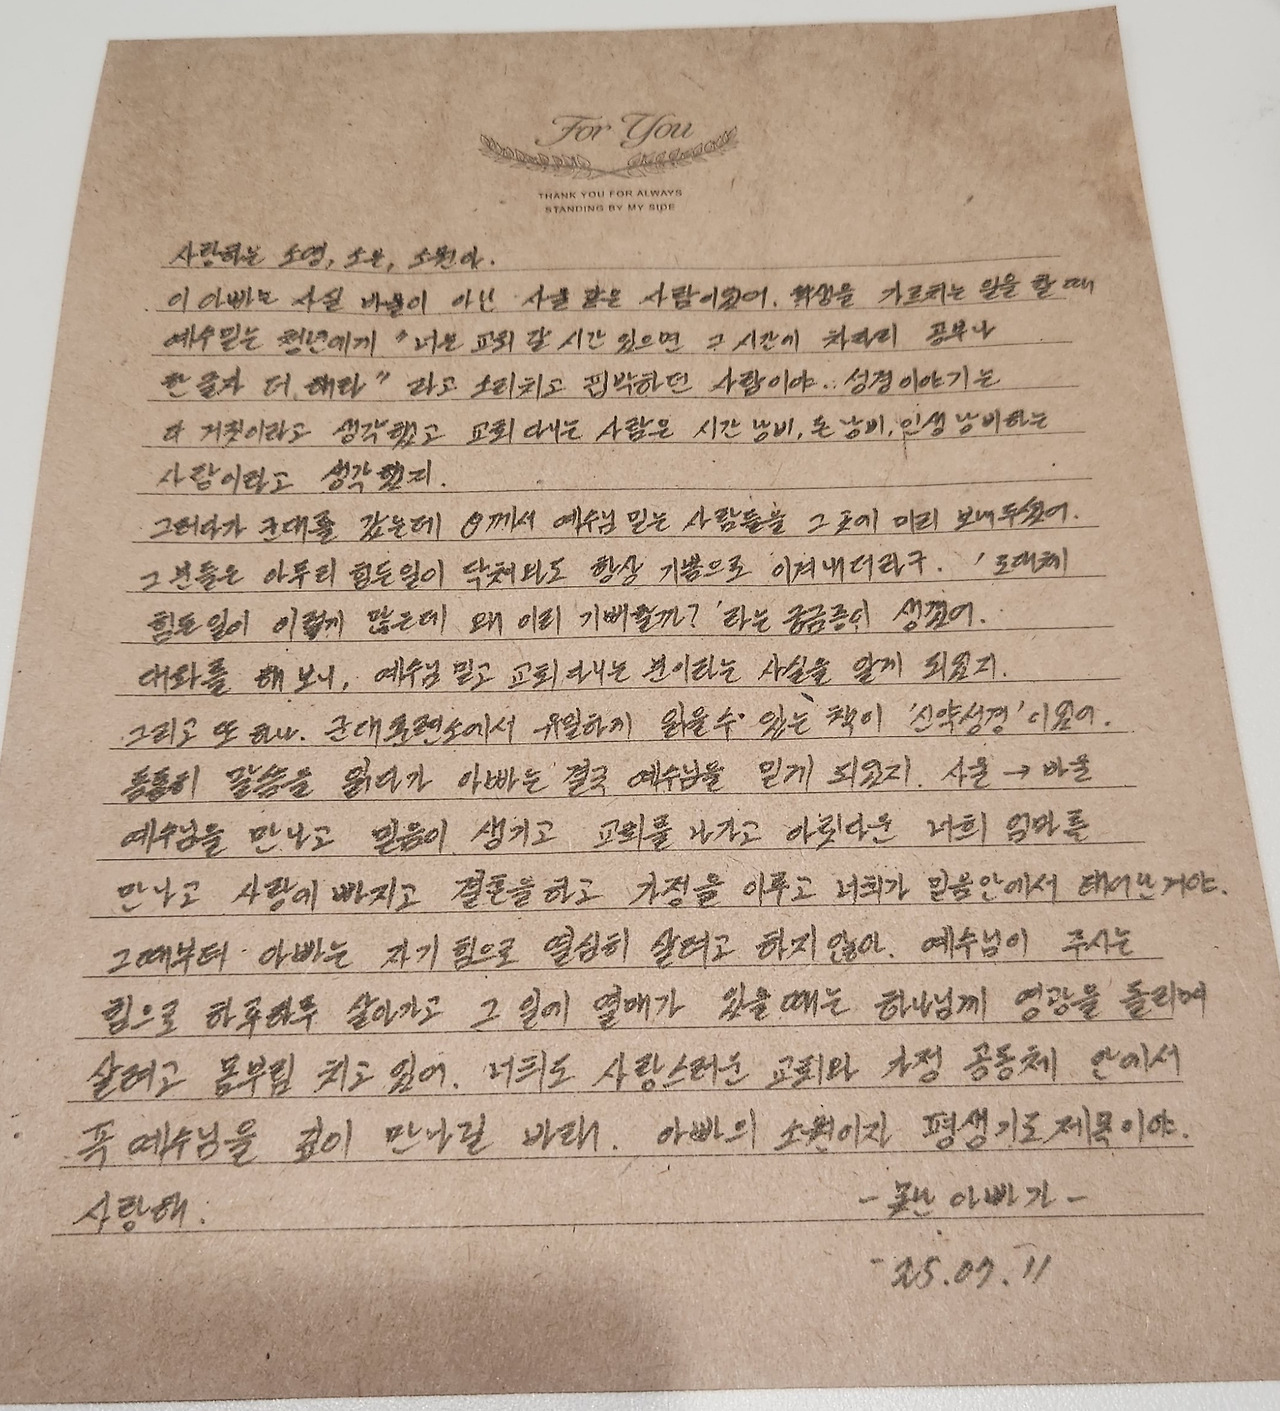 For You
THANK YOU FOR ALWAYS
STANDING BY MY SIDE
사랑하는 소영, 소은, 소원아.
이 아빠는 사실 바울이 아닌 사울 같은 사람이었어. 학생을 가르치는 일을 할 때
예수믿는 청년에게 "너는 교회 갈 시간 있으면 그 시간에 차라리 공부나
한 글자 더 해라" 라고 소리치고 핍박하던 사람이야. 성경이야기는
다 거짓이라고 생각했고 교회 다니는 사람은 시간 낭비, 돈 낭비, 인생 낭비하는
사람이라고 생각했지.
그러다가 군대를 갔는데 께서 예수님 믿는 사람들을 그 곳에 미리 보내두셨어.
그 분들은 아무리 힘든일이 닥쳐와도 항상 기쁨으로 이겨내더라구. '도대체
힘든 일이 이렇게 많은데 왜 이리 기뻐할까?' 라는 궁금증이 생겼어.
대화를 해 보니, 예수님 믿고 교회 다니는 분이라는 사실을 알게 되었지.
그리고 또 하나. 군대훈련소에서 유일하게 읽을 수 있는 책이 '신약성경'이었어.
틈틈히 말씀을 읽다가 아빠는 결국 예수님을 믿게 되었지. 사울 → 바울
예수님을 만나고 믿음이 생기고 교회를 나가고 아릿다운 너희 엄마를
만나고 사랑에 빠지고 결혼을 하고 가정을 이루고 너희가 믿음안에서 태어난거야.
그때부터 아빠는 자기 힘으로 열심히 살려고 하지 않아. 예수님이 주시는
힘으로 하루하루 살아가고 그 일에 열매가 있을 때는 하나님께 영광을 돌리며
살려고 몸부림 치고 있어. 너희도 사랑스러운 교회와 가정 공동체 안에서
꼭 예수님을 깊이 만나길 바래. 아빠의 소원이자 평생기도제목이야.
사랑해. - 못난 아빠가 -
25.07.11